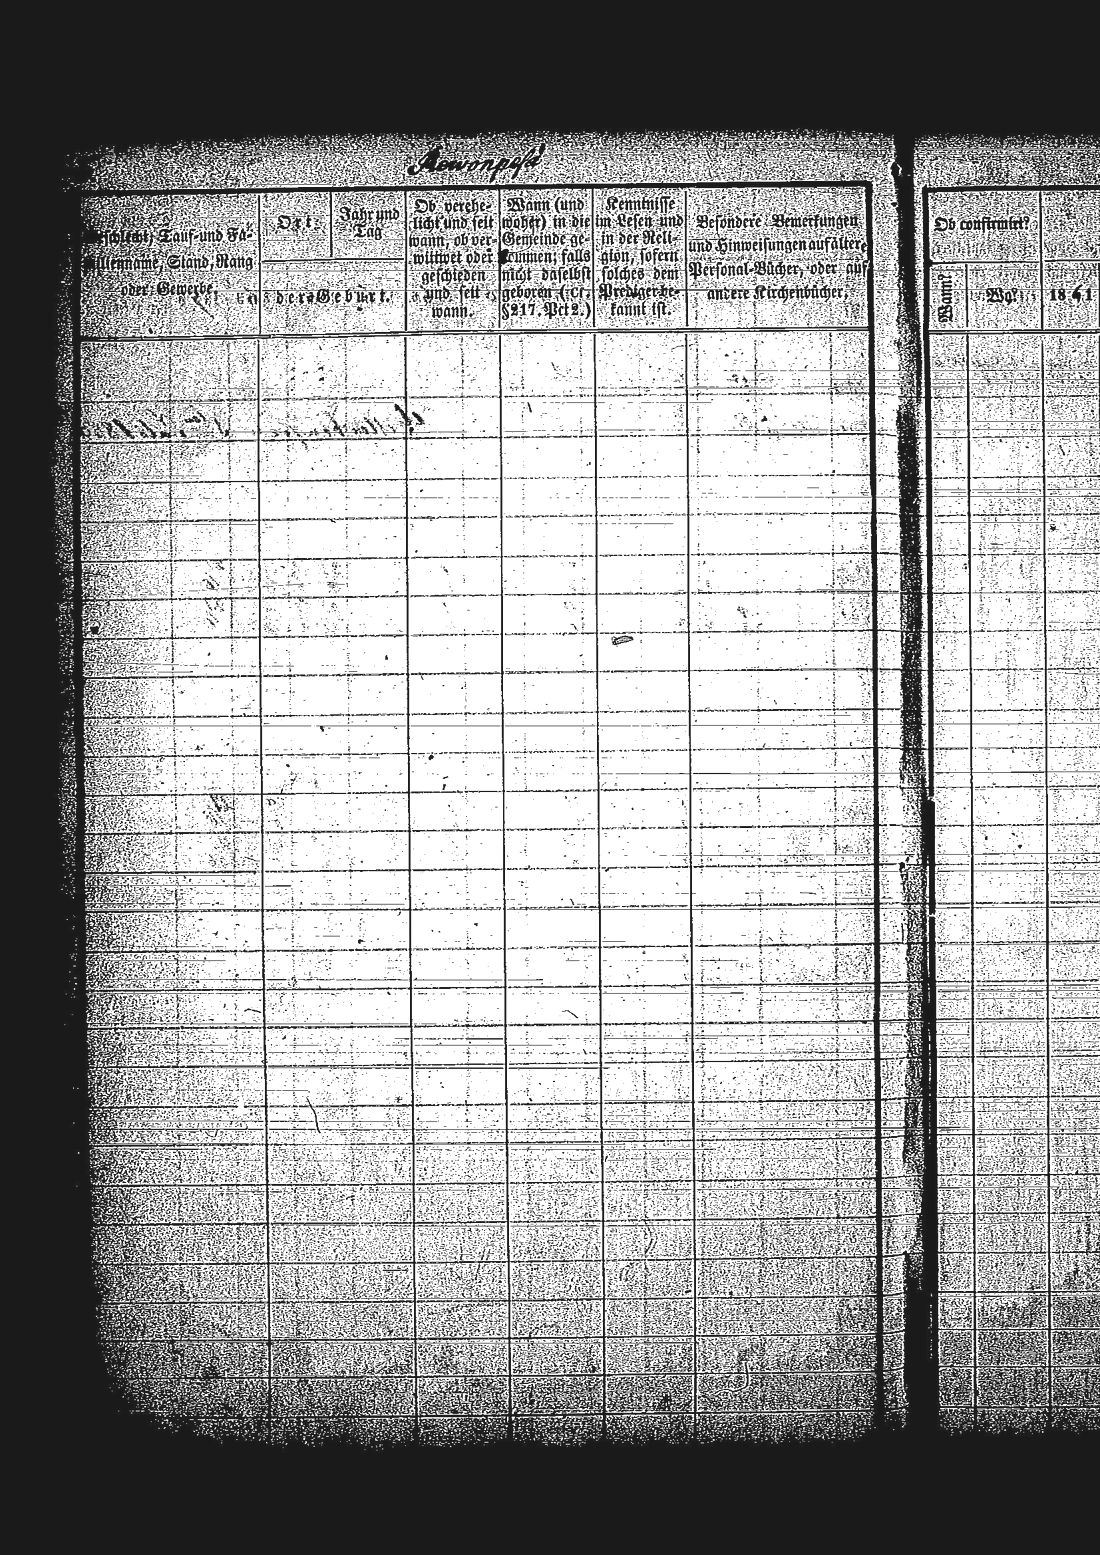 Geschlecht, Tauf- und Fa-
milienname, Stand, Rang
oder Gewerbe.
Ort
Jahr und
Tag
der Geburt.
Ob verehe-
licht und seit
wann, ob ver-
wittwet oder
geschieden
und seit
wann.
Wann (und
woher) in die
Gemeinde ge-
kommen; falls
nicht daselbst
geboren (cf.
§217. Pct 2.)
Kenntnisse
im Lesen und
in der Reli-
gion, sofern
solches dem
Prediger be-
kannt ist.
Besondere Bemerkungen
und Hinweisungen auf ältere
Personal-Bücher, oder auf
andere Kirchenbücher.
Ob confirmirt?
Wann?
Wo?
1841